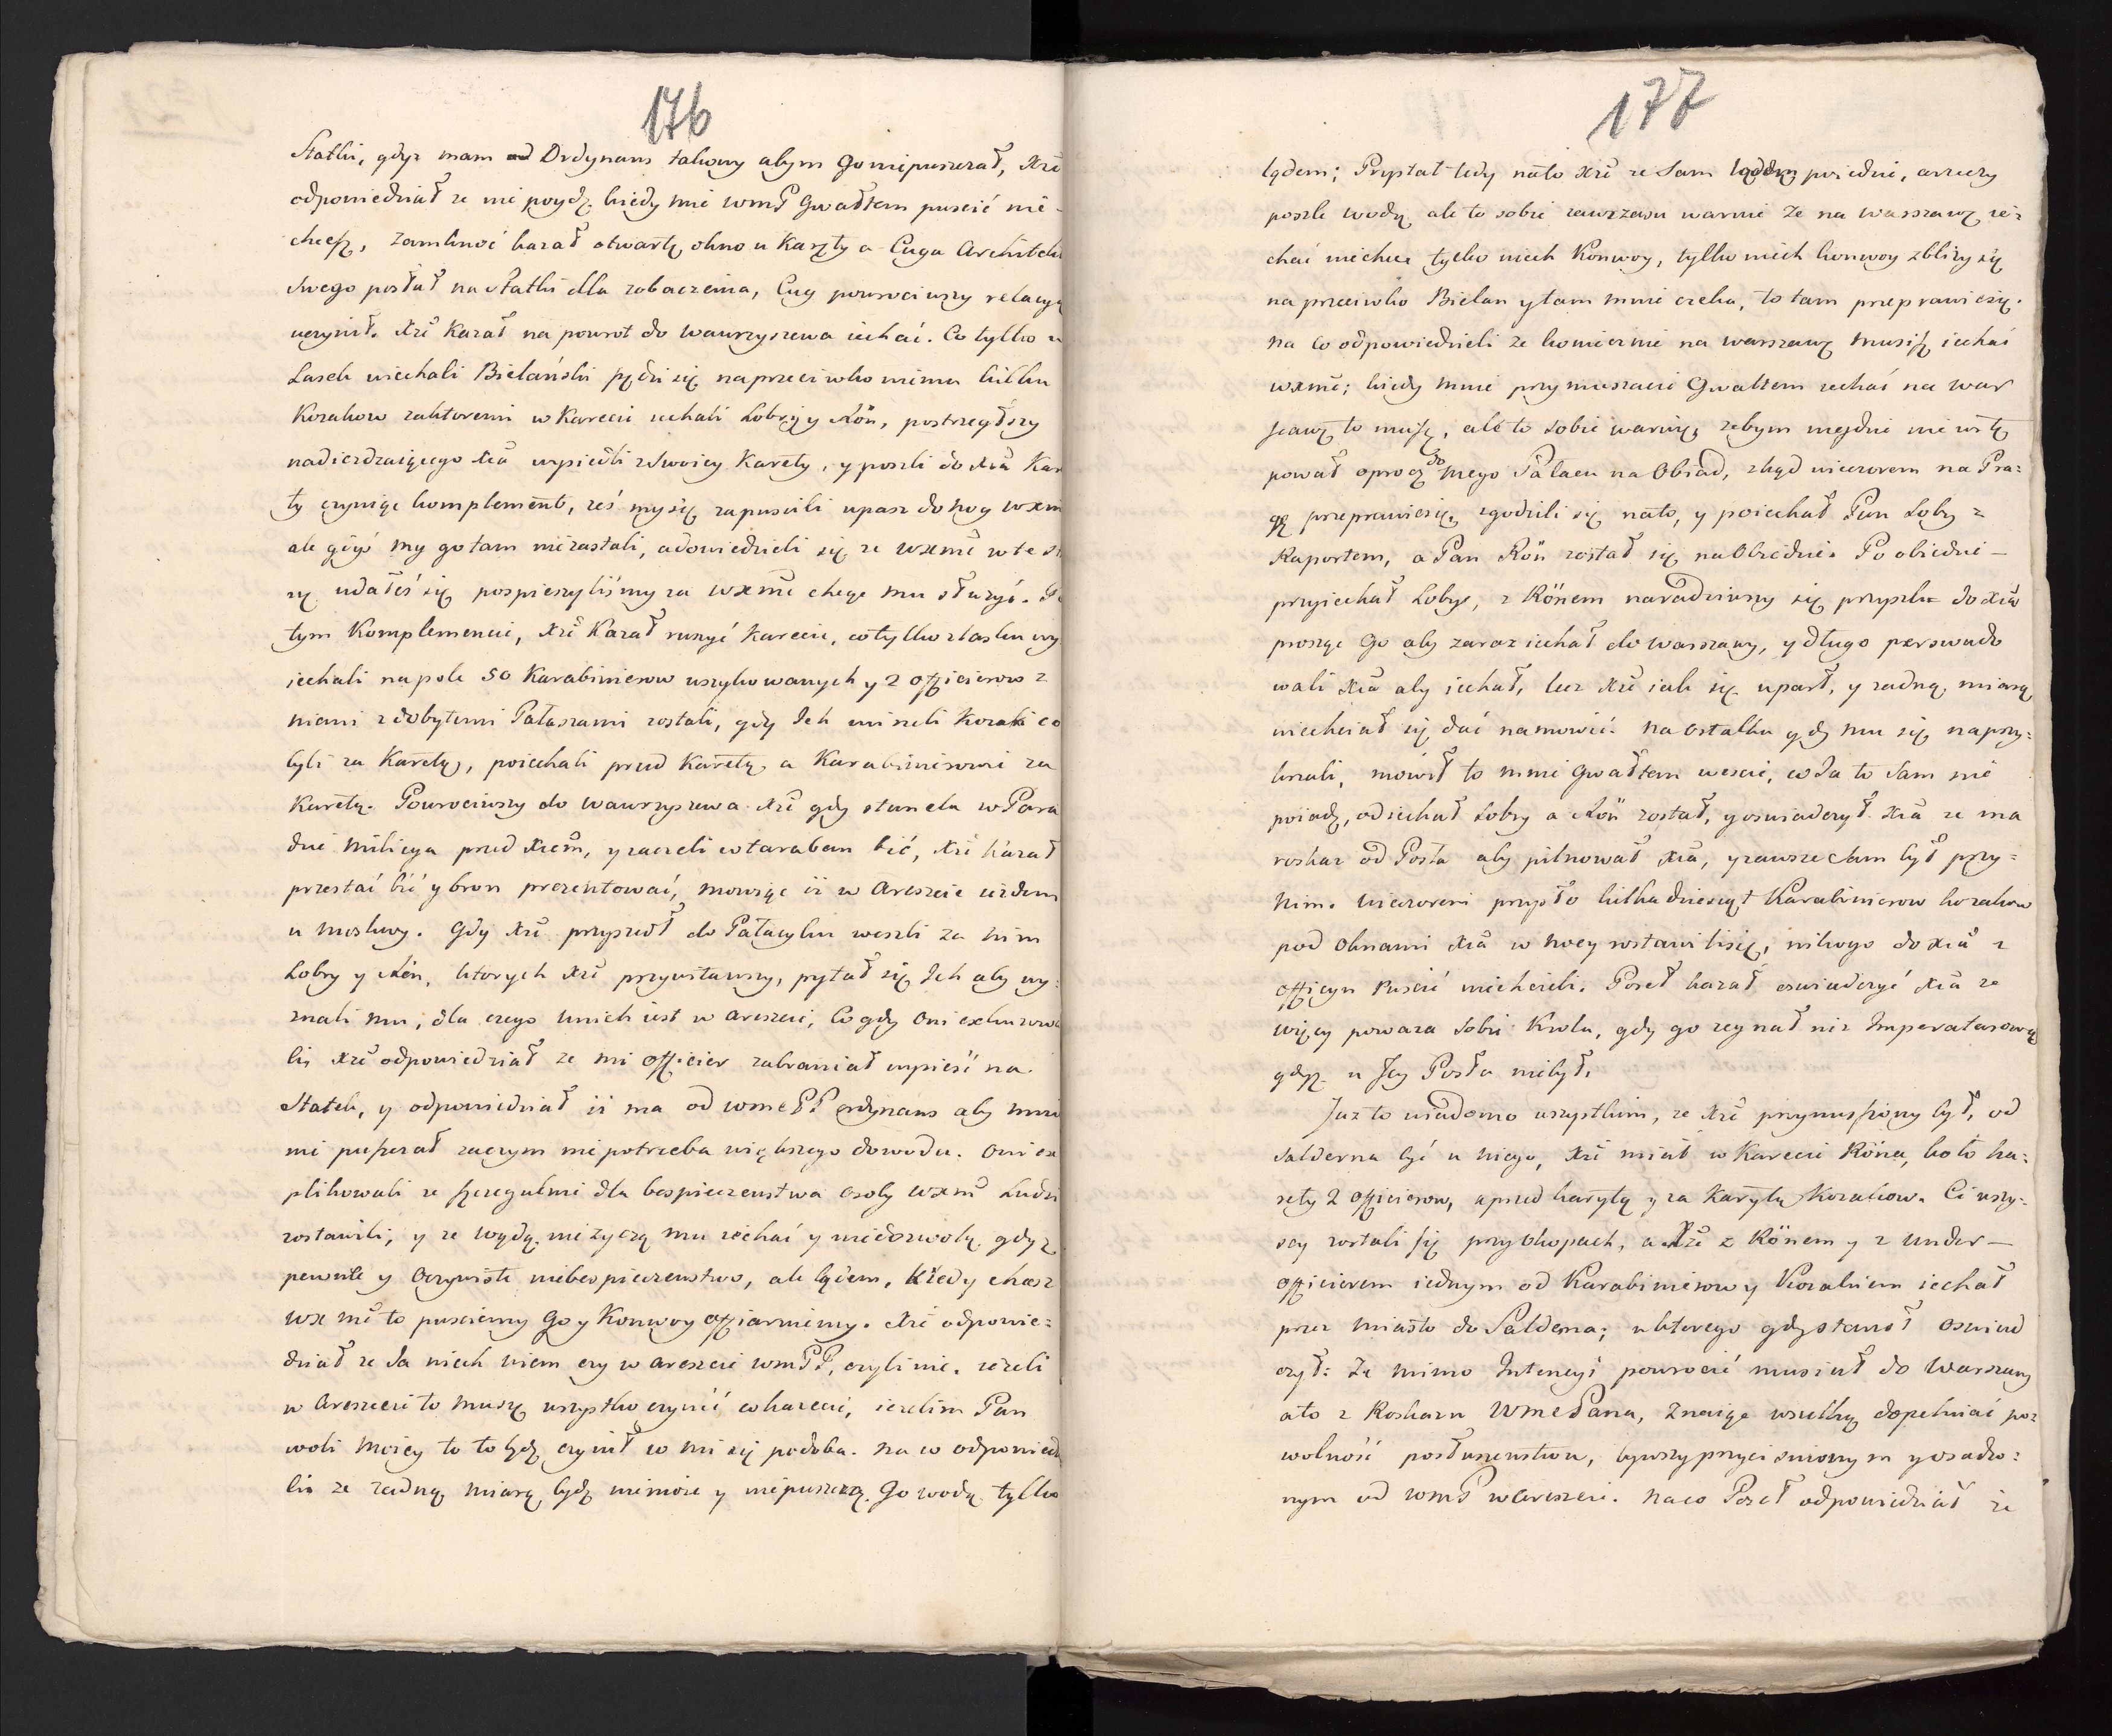 176
Statki, gdyz mam Ordynans takowy abym Go niepuszczał, Xże
odpowiedział ze nie poydę kiedy mie WmP Gwałtem puscić nie-
chcesz, Zamknoć kazał otwarte okno u Karety a Cuga Architekt
Swego posłał na Statki dla zobaczenia, Cug powrociwszy relacyą
uczynił. Xże Kazał na powrot do Wawrzyszewa iechać. Co tylko w
Lasek wiechali Bielański pędzi się naprzeciwko niemu kilku
Kozakow zaktoremi w Karecie iechali Lobry y Kön, postrzegłszy
nadiezdzaiącego Xcia wysiedli z Swoiey Karety, y poszli do Xcia Kar
ty czyniąc komplement, ześ my się zapuscili upasz do nog WXm
ale gdyś my go tam niezastali, adowiedzieli się ze WXmć w te st
nę udałeś się pospieszyliśmy za WXmć chcąc mu służyć. Po
tym Komplemencie, Xże Kazał ruszyć karecie, co tylko z lasku wy
iechali na pole 50 Karabinierow uszykowanych y 2 officierow z
niemi z dobytemi Pałaszami zostali, gdy Ich mineli Kozaki co
byli za Karetą, poiechali przed Karetę a Karabinierowie za
Karetę. Powrociwszy do Wawrzyszewa Xże gdy staneła w Para
dzie Milicya przed Xciem, y zaczeli w taraban bić, Xże kazał
przestać bić y bron prezentować, mowiąc iż w Areszcie iezdem
u Moskwy. Gdy Xże przyszedł do Pałacyku weszli za nim
Lobry y Kön, ktorych Xże przywitawszy, pytał się Ich aby wy:
znali mu, dla czego unich iest w Areszcie, Co gdy Oni exkuzowa
li, Xże odpowiedział ze mi officier zabraniał wysieść na
Statek, y odpowiedział iż ma od WmePP ordynans aby mnie
nie puszczał zaczym nie potrzeba większego dowodu. Oni ex
plikowali ze szczegulnie dla bespieczenstwa Osoby WXmć Ludzi
zostawili, y ze wodą nie życzą mu iechać y niedozwolą gdyz
pewne y Oczywiste niebespieczenstwo, ale lądem, kiedy chcesz
WXmć to puscimy Go y Konwoy offiarniemy. Xże odpowie=
dział ze Ja niech wiem czy w Areszcie WmPP, czyli nie. ieżeli
w Areszcie to muszę wszystko czynić co kazecie, iezelim Pan
woli Moiey to to będę czynił co mi się podoba. na co odpowiedzie
li ze zadną miarą bydź niemoże y niepuszczą Go wodą tylko

177
lądem; Przystał tedy nato Xże ze Sam lądem poiedzie, arzeczy
poszle wodą ale to sobie zawczasu warnie ze na warszawę ie=
chać niechce tylko niech Konwoy, tylko niech konwoy zbliży się
na przeciwko Bielan y tam mnie czeka, to tam przeprawię się.
na co odpowiedzieli ze koniecznie na warszawę musisz iechać
wxmć; kiedy mnie przymuszacie Gwałtem iechać na war
szawę to muszę, ale to sobie warnię, zebym nigdzie nie wstę
pował oprocz do mego Pałacu na Obiad, zkąd wieczorem na Pra=
gę przeprawię się, zgodzili się nato, y poiechał Pan Lobry z
Raportem, a Pan Kön został się na Obiedzie. Po obiedzie—
przyiechał Lobry, z Könem naradziwszy się przyszli do Xcia
prosząc Go aby zaraz iechał do Warszawy, y długo perswado
wali Xcia aby iechał, lecz Xże iak się uparł, y zadną miarą
niechciał się dać namowić. na ostatku gdy mu się naprzy=
krzali, mowił to mnie Gwałtem wescie, co Ja to Sam nie
poiadę, odiechał Lobry a Kön został, y oswiadczył Xcia ze ma
roskaz od Posła aby pilnował Xcia, y zawsze tam był przy=
nim. Wieczorem przyszło kilkadziesiąt Karabinierow kozakow
pod Oknami Xcia w nocy zostawili się, nikogo do Xcia z
officyn Puscić niechcieli. Poseł kazał oswiadczyć Xcia ze
więcy powaza sobie Krola, gdy go zegnał niż Imperatorową
gdyz u Jey Posła niebył.
Juz to wiadomo wszystkim, ze Xże przymuszony był, od
Salderna być u niego, Xże miał w Karecie Köna, koło ka=
rety 2 officierow, a przed karetą y za Karetą Kozakow. Ci wszy=
scy zostali się przy Okopach, a Xże z Könem y z under—
officierem iednym od Karabinierow y Kozakiem iechał
przez Miasto do Salderna; u ktorego gdy stanoł Oswiad
czył: Ze mimo Intencyi powrocić musiał do Warszawy
a to z Roskazu WmePana, Znaiąc wszelką dopełniać po=
wolność posłuszenstwu, bywszy przycisnionym y osadzo=
nym od WmP w Areszcie. na co Poseł odpowiedział ze